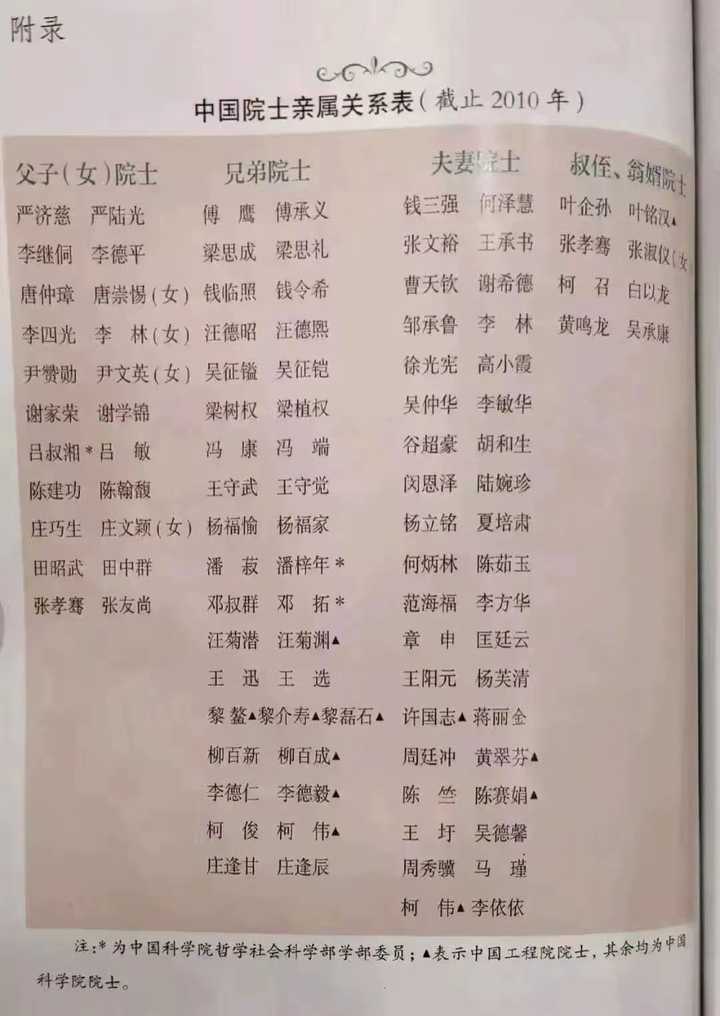 附录
中国院士亲属关系表(截止2010年)
父子(女)院士 兄弟院士 夫妻院士 叔侄、翁婿院士
严济慈 严陆光 傅 鹰 傅承义 钱三强 何泽慧 叶企孙 叶铭汉▲
李继侗 李德平 梁思成 梁思礼 张文裕 王承书 张孝骞 张淑仪(女)
唐仲璋 唐崇惕(女) 钱临照 钱令希 曹天钦 谢希德 柯 召 白以龙
李四光 李 林(女) 汪德昭 汪德熙 邹承鲁 李 林 黄鸣龙 吴承康
尹赞勋 尹文英(女) 吴征镒 吴征铠 徐光宪 高小霞
谢家荣 谢学锦 梁树权 梁植权 吴仲华 李敏华
吕叔湘* 吕 敏 冯 康 冯 端 谷超豪 胡和生
陈建功 陈翰馥 王守武 王守觉 闵恩泽 陆婉珍
庄巧生 庄文颖(女) 杨福愉 杨福家 杨立铭 夏培肃
田昭武 田中群 潘 菽 潘梓年* 何炳林 陈茹玉
张孝骞 张友尚 邓叔群 邓 拓* 范海福 李方华
汪菊潜 汪菊渊▲ 章 申 匡廷云
王 迅 王 选 王阳元 杨芙清
黎 鳌▲ 黎介寿▲ 黎磊石▲ 许国志▲ 蒋丽金
柳百新 柳百成▲ 周廷冲 黄翠芬▲
李德仁 李德毅▲ 陈 竺 陈赛娟▲
柯 俊 柯 伟▲ 王 圩 吴德馨
庄逢甘 庄逢辰 周秀骥 马 瑾
柯 伟▲ 李依依
注:*为中国科学院哲学社会科学部学部委员;▲表示中国工程院院士,其余均为中国
科学院院士。